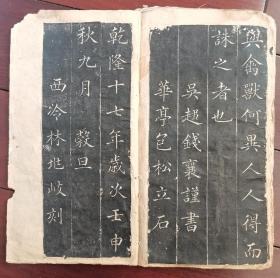 與禽獸何異人人得而
誅之者也
吳趨錢襄謹書
華亭包松立石
乾隆十七年歲次壬申
秋九月 穀旦
西泠林兆岐刻